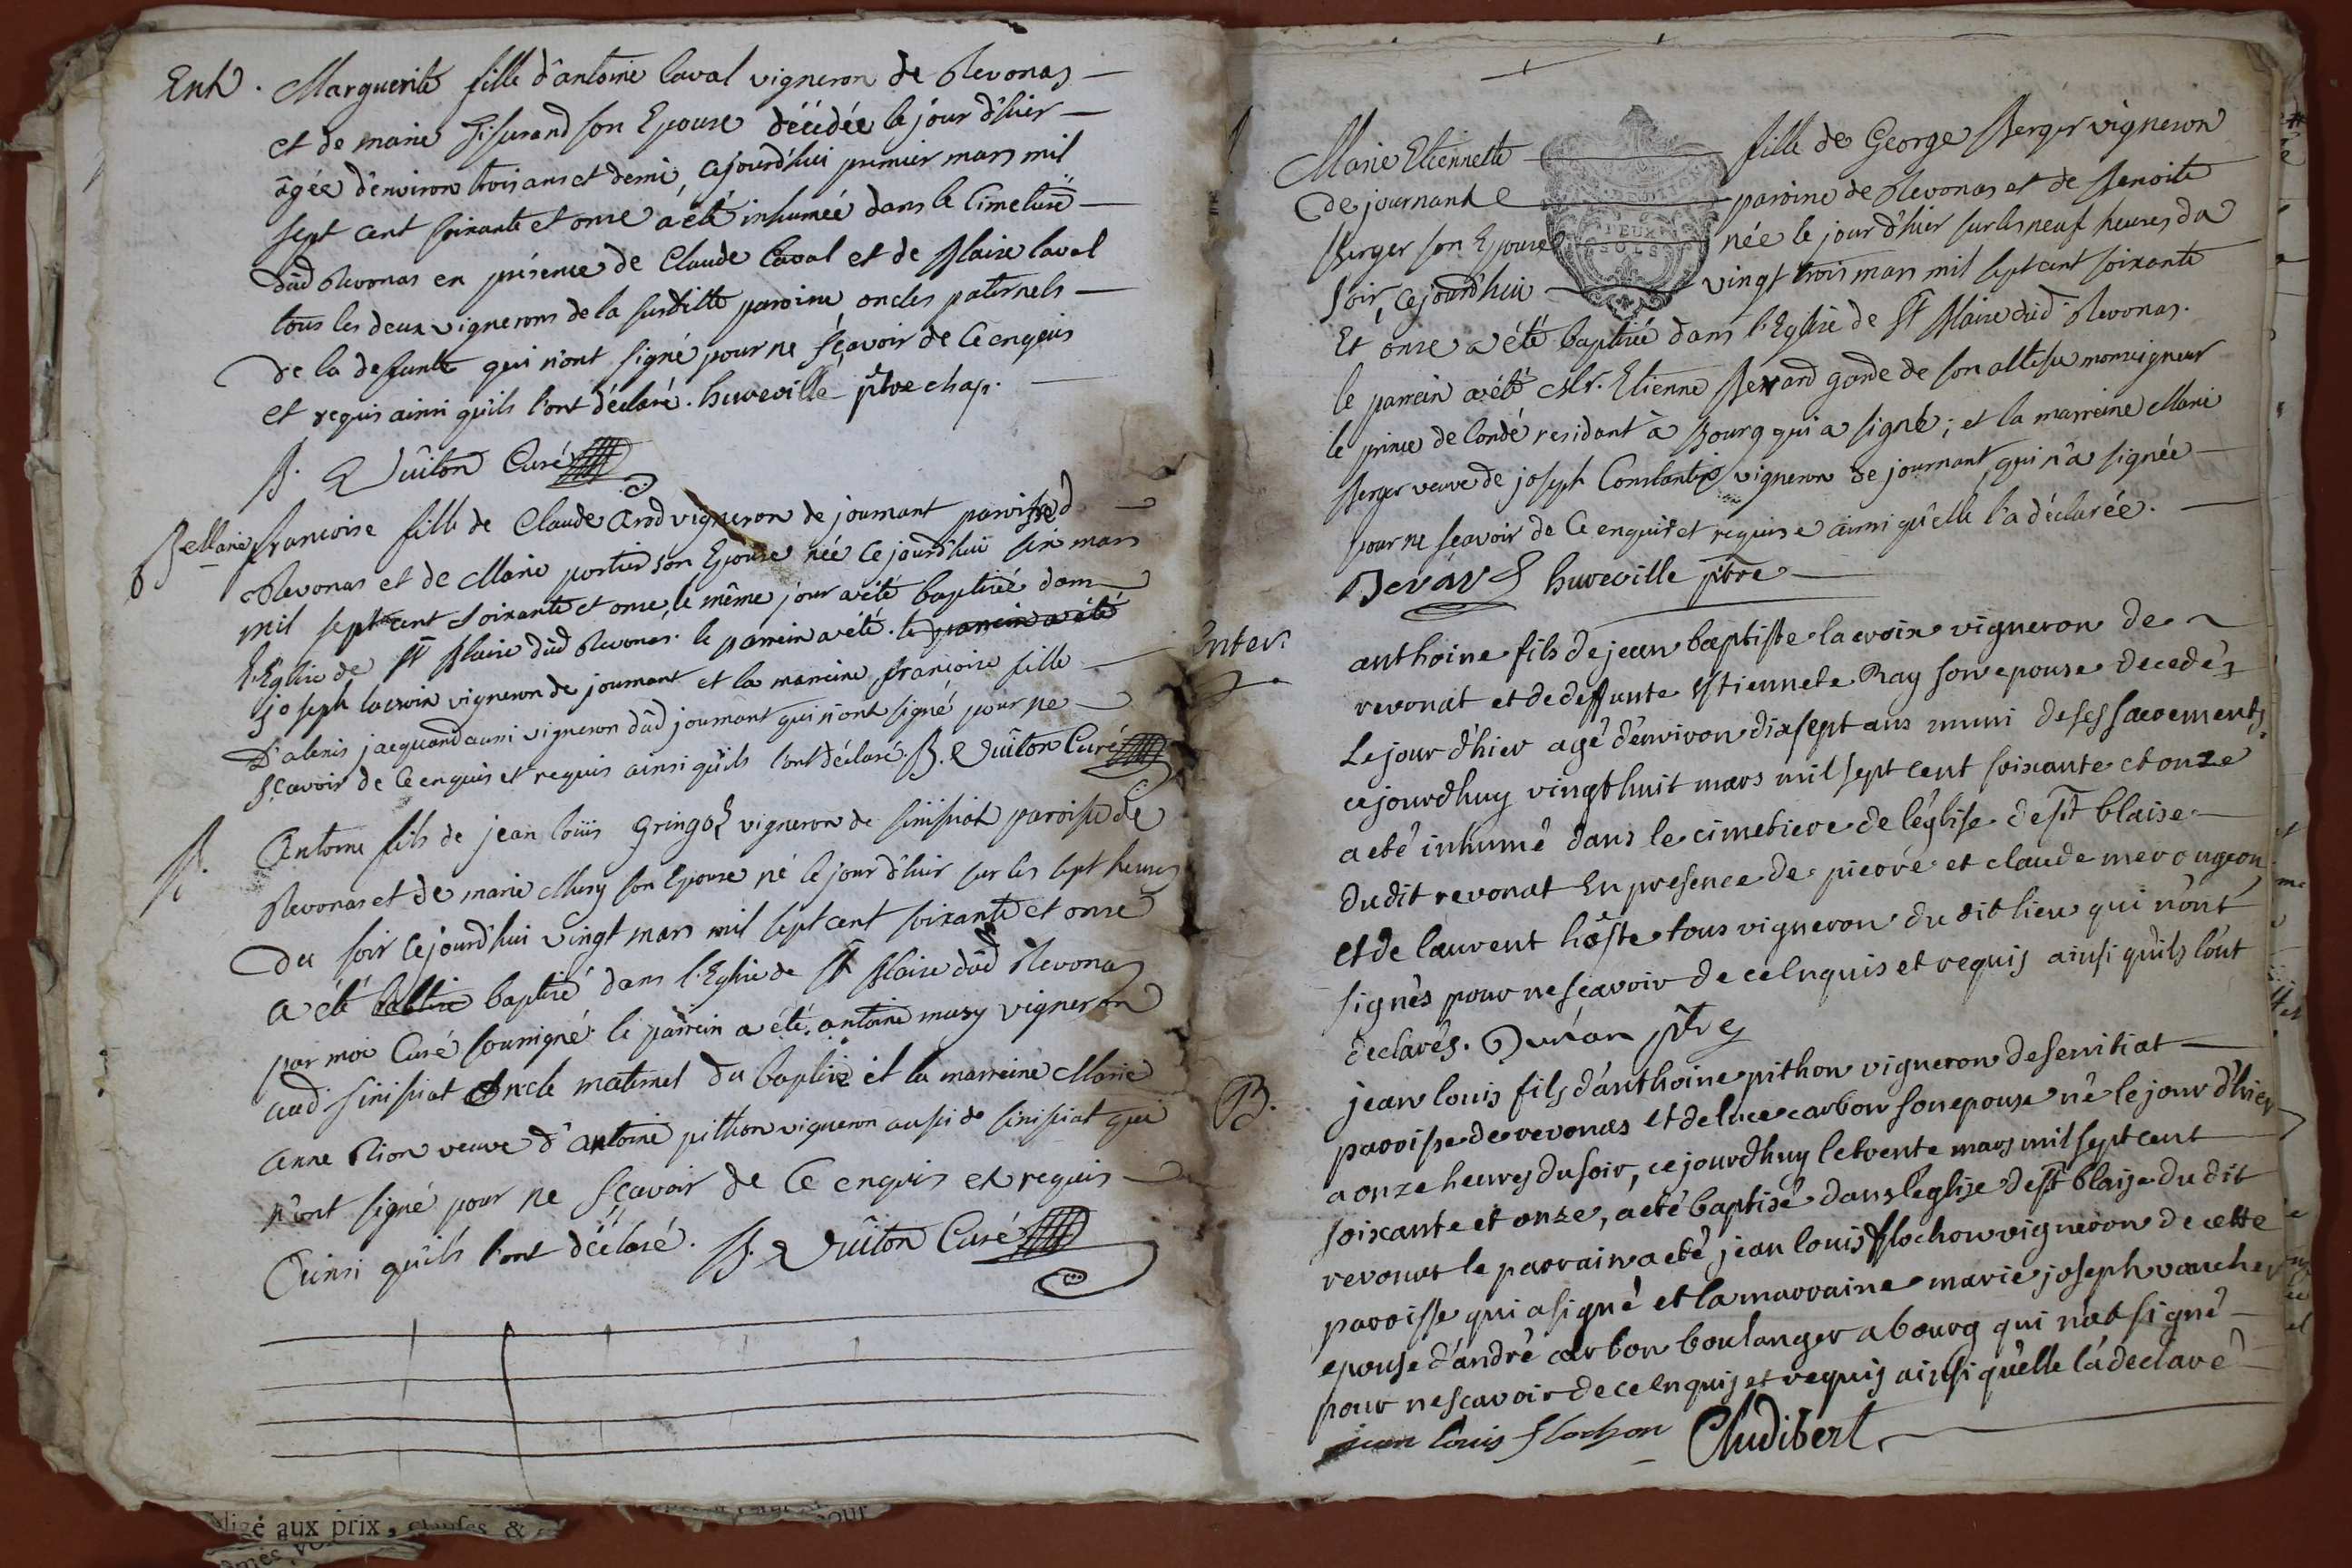 Ent. Marguerite fille d'antoine laval vigneron de Revonas
et de marie son Epouse décédée le jour d'hier
âgée d'environ trois ans et demi, cejourd'hui premier mars mil
sept cent soixante et onze a été inhumée dans le Cimetiere
dud Revonas en présence de Claude Laval et de Blaise laval
tous les deux vignerons de la susditte paroisse oncles paternels
de la defunte qui n'ont signé pour ne sçavoir de ce enquis
et requis ainsi qu'ils l'ont déclaré. huveville ptre chap.
B. Vuiton Curé
B Marie francoise fille de Claude vigneron de journant paroisse d
Revonas et de Marie portier son Epouse née ce jourd'hui six mars
mil sept cent soixante et onze, le même jour a été baptisée dans
l'Eglise de St Blaise dud Revonas. le parrein a été. le parrein a été
joseph lacroix vigneron de journant et la marreine francoise fille
D'alexis jacquand aussi vigneron dud journant qui n'ont signé pour ne
sçavoir de ce enquis et requis ainsi qu'ils l'ont déclaré. B. Vuiton Curé
B. Antoine fils de jean loüis Gringoz vigneron de sinissiat paroisse de
Revonas et de marie Musy son Epouse né le jour d'hier sur les sept heures
du soir cejourd'hui vingt mars mil sept cent soixante et onze
a été baptisé dans l'Eglise de St Blaise dud Revonas
par moi Curé soussigné. le parrein a été. antoine musy vigneron
aud sinissiat Oncle maternel du baptisé et la marreine Marie
anne Rion veuve d'antoine pithon vigneron aussi de sinissiat qui
n'ont signé pour ne sçavoir de Ce enquis et requis
ainsi qu'ils l'ont déclaré. B. Vuiton Curé
Marie Etiennette fille de George Berger vigneron
de journant paroisse de Revonas et de Benoite
Berger son Epouse née le jour d'hier sur les neuf heures du
soir, cejourd'hui vingt trois mars mil sept cent soixante
DEUX
SOLS
Et onze a été baptisée dans l'Eglise de St Blaise dud Revonas.
le parrein a été Mr. Etienne Bevard garde de son altesse monseigneur
le prince de Condé residant à Bourg qui a signé; et la marreine Marie
Berger veuve de joseph Constantin vigneron de journant, qui n'a signée
pour ne sçavoir de Ce enquise et requise ainsi qu'elle l'a déclarée.
Bevard huveville ptre
Enter. anthoine fils de jean baptiste lacroix vigneron de
revonat et de deffunte Estiennete Ray son epouse decedé
Le jour d'hier agé d'environ dix sept ans muni de ses sacrements
cejourdhuy vingt huit mars mil sept cent soixante et onze
a eté inhumé dans le cimetiere de l'église de St blaise
dudit revonat En presence de pierre et claude merougeon
et de laurent hôste tous vigneron du dit lieu qui n'ont
signés pour ne scavoir de ce Enquis et requis ainsi qu'ils l'ont
declarés. ptre
B. jean louis fils d'anthoine pithon vigneron de senitiat
paroisse de revonas et de luce carbon son epouse né le jour d'hier
a onze heures du soir, ce jourdhuy le trente mars mil sept cent
soixante et onze, a eté baptisé dans l'eglise de St blaise du dit
revonas le parrain a eté jean louis flochon vigneron de cette
paroisse qui a signé et la marraine marie joseph vaucher
epouse d'andré carbon boulanger a bourg qui n'at signé
pour ne scavoir de ce Enquis et requis ainsi qu'elle la declaré
jean louis flochon Chudibert
aux prix, clauses &